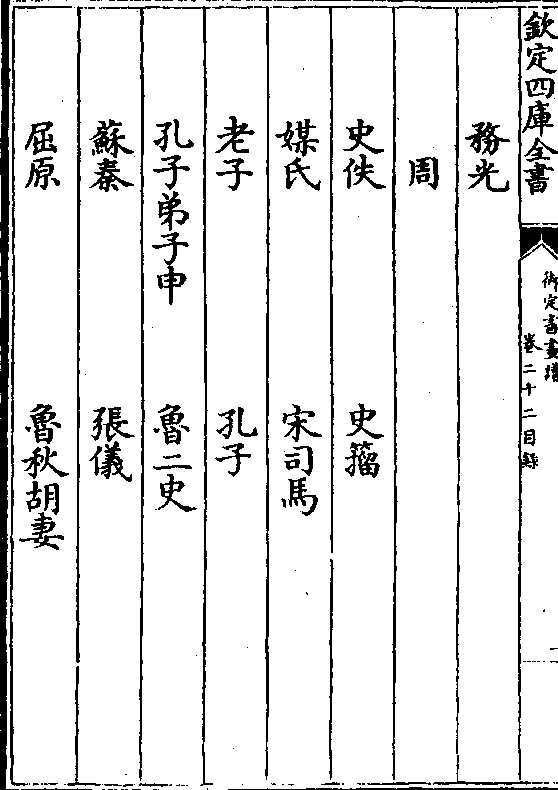 欽定四庫全書
御定書畫譜
卷二十二目錄
務光
周
史佚 史籀
媒氏 宋司馬
老子 孔子
孔子弟子申 魯二史
蘇秦 張儀
屈原 魯秋胡妻